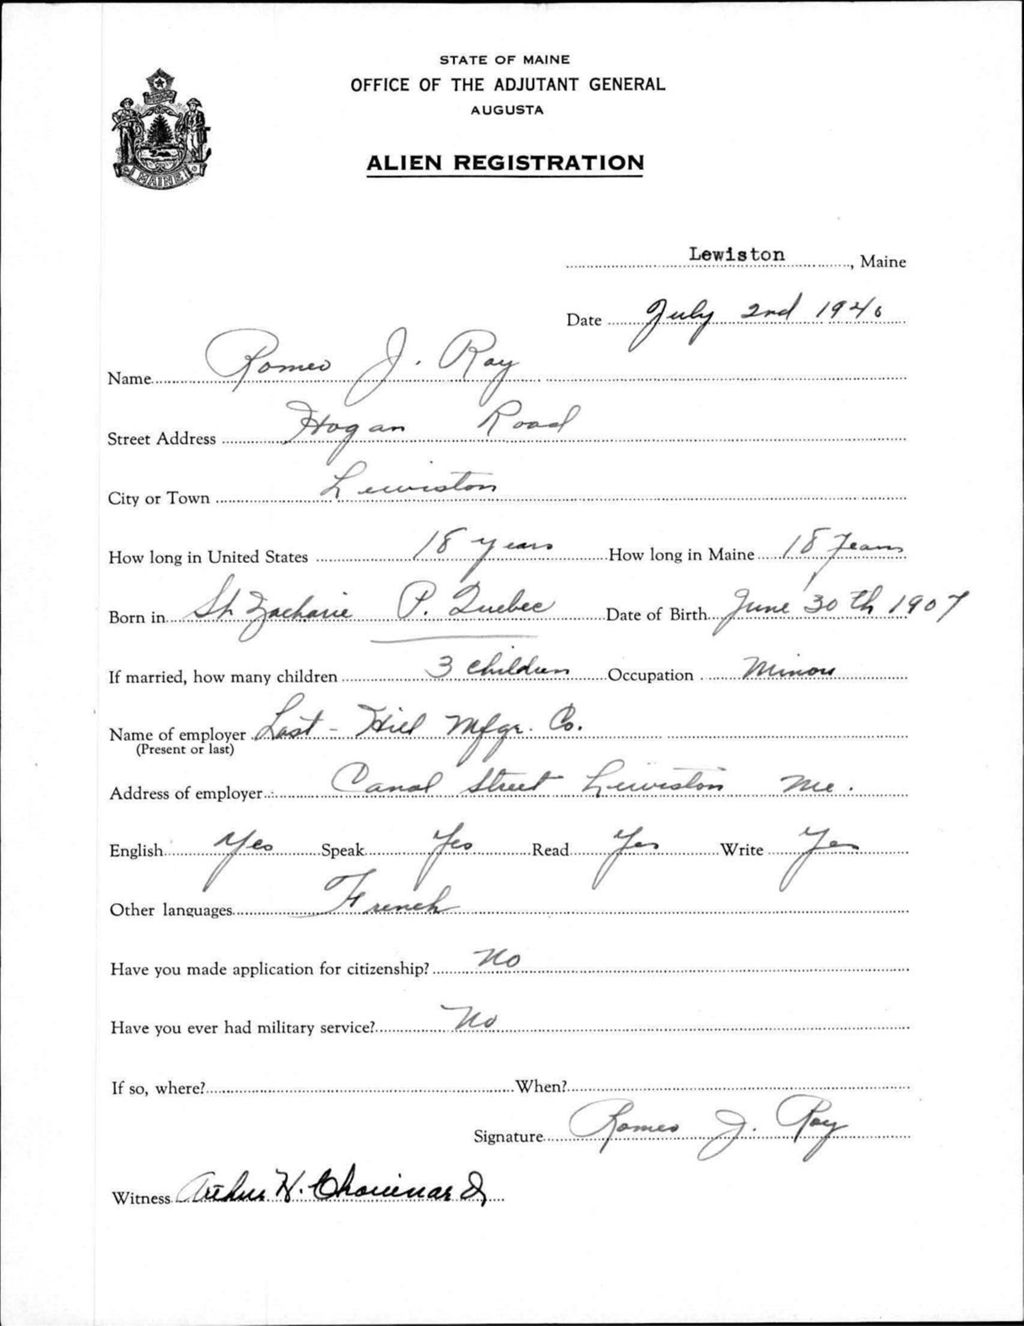 STATE OF MAINE
OFFICE OF THE ADJUTANT GENERAL
AUGUSTA
ALIEN REGISTRATION
MAINE
Lewiston, Maine
Date July 2nd 1940
Name Romeo J. Roy
Street Address Hogan Road
City or Town Lewiston
How long in United States 18 years How long in Maine 18 years
Born in St. Zacharie P. Quebec Date of Birth June 30th 1907
If married, how many children 3 children Occupation
Name of employer Last - Hill Mfgr. Co.
(Present or last)
Address of employer Canal Street Lewiston Me.
English Yes Speak Yes Read Yes Write Yes
Other languages French
Have you made application for citizenship? No
Have you ever had military service? No
If so, where? When?
Signature Romeo J. Roy
Witness Arthur W. Chouinard